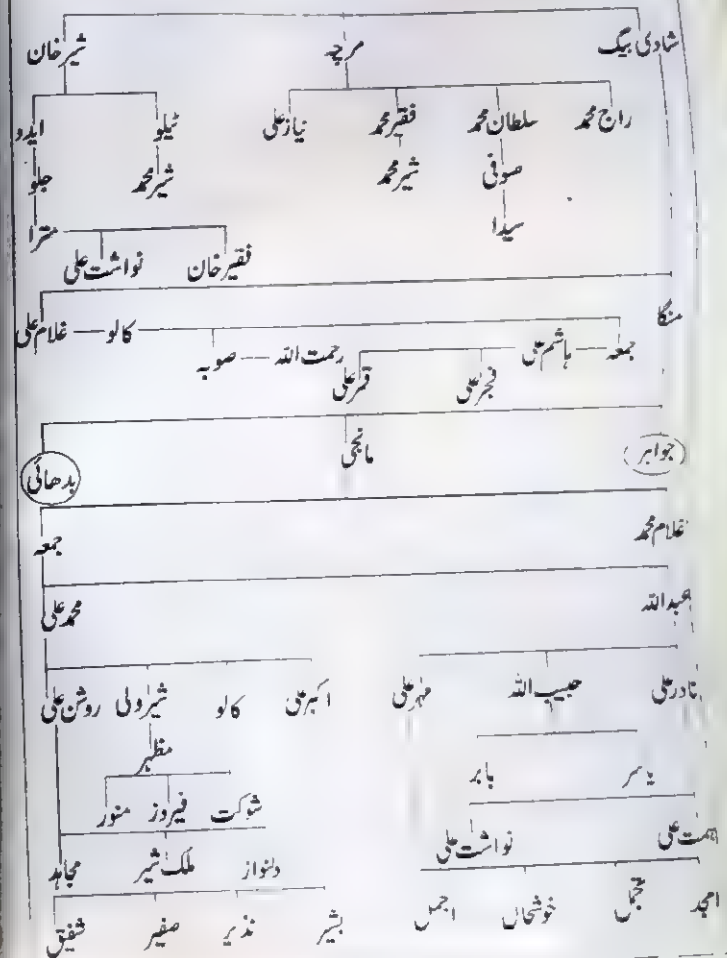 شادی بیگ مرچہ شیر خان
راج محمد سلطان محمد فقیر محمد نیاز علی ٹیلو ایدو
صوفی شیر محمد شیر محمد جلو
سیدا مترا
فقیر خان نواشت علی
منگا کالو غلام علی
جمعہ ہاشم علی رحمت اللہ صوبہ
فجر علی قمر علی
جواہر مانجی بدھائی
غلام محمد جمعہ
عبداللہ محمد علی
نادر علی حبیب اللہ مہر علی اکبر علی کالو شیر ولی روشن علی
یاسر بابر مظہر
شوکت فیروز منور
ہمت علی نواشت علی دلنواز ملک شیر مجاہد
امجد تجمل خوشحال اجمل بشیر نذیر صفیر شفیق